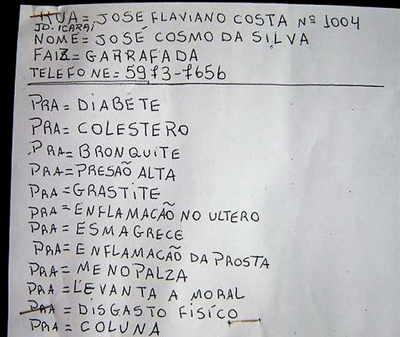 RUA= JOSE FLAVIANO COSTA Nº 1004
JD. ICARAI
NOME= JOSÉ COSMO DA SILVA
FAIZ= GARRAFADA
TELEFONE= 5973-7656
PRA= DIABETE
PRA= COLESTERO
PRA= BRONQUITE
PRA= PRESÃO ALTA
PRA= GRASTITE
PRA= ENFLAMACÃO NO ULTERO
PRA= ESMAGRECE
PRA= ENFLAMACÃO DA PROSTA
PRA= MENOPALZA
PRA= LEVANTA A MORAL
PRA= DISGASTO FISÍCO
PRA= COLUNA